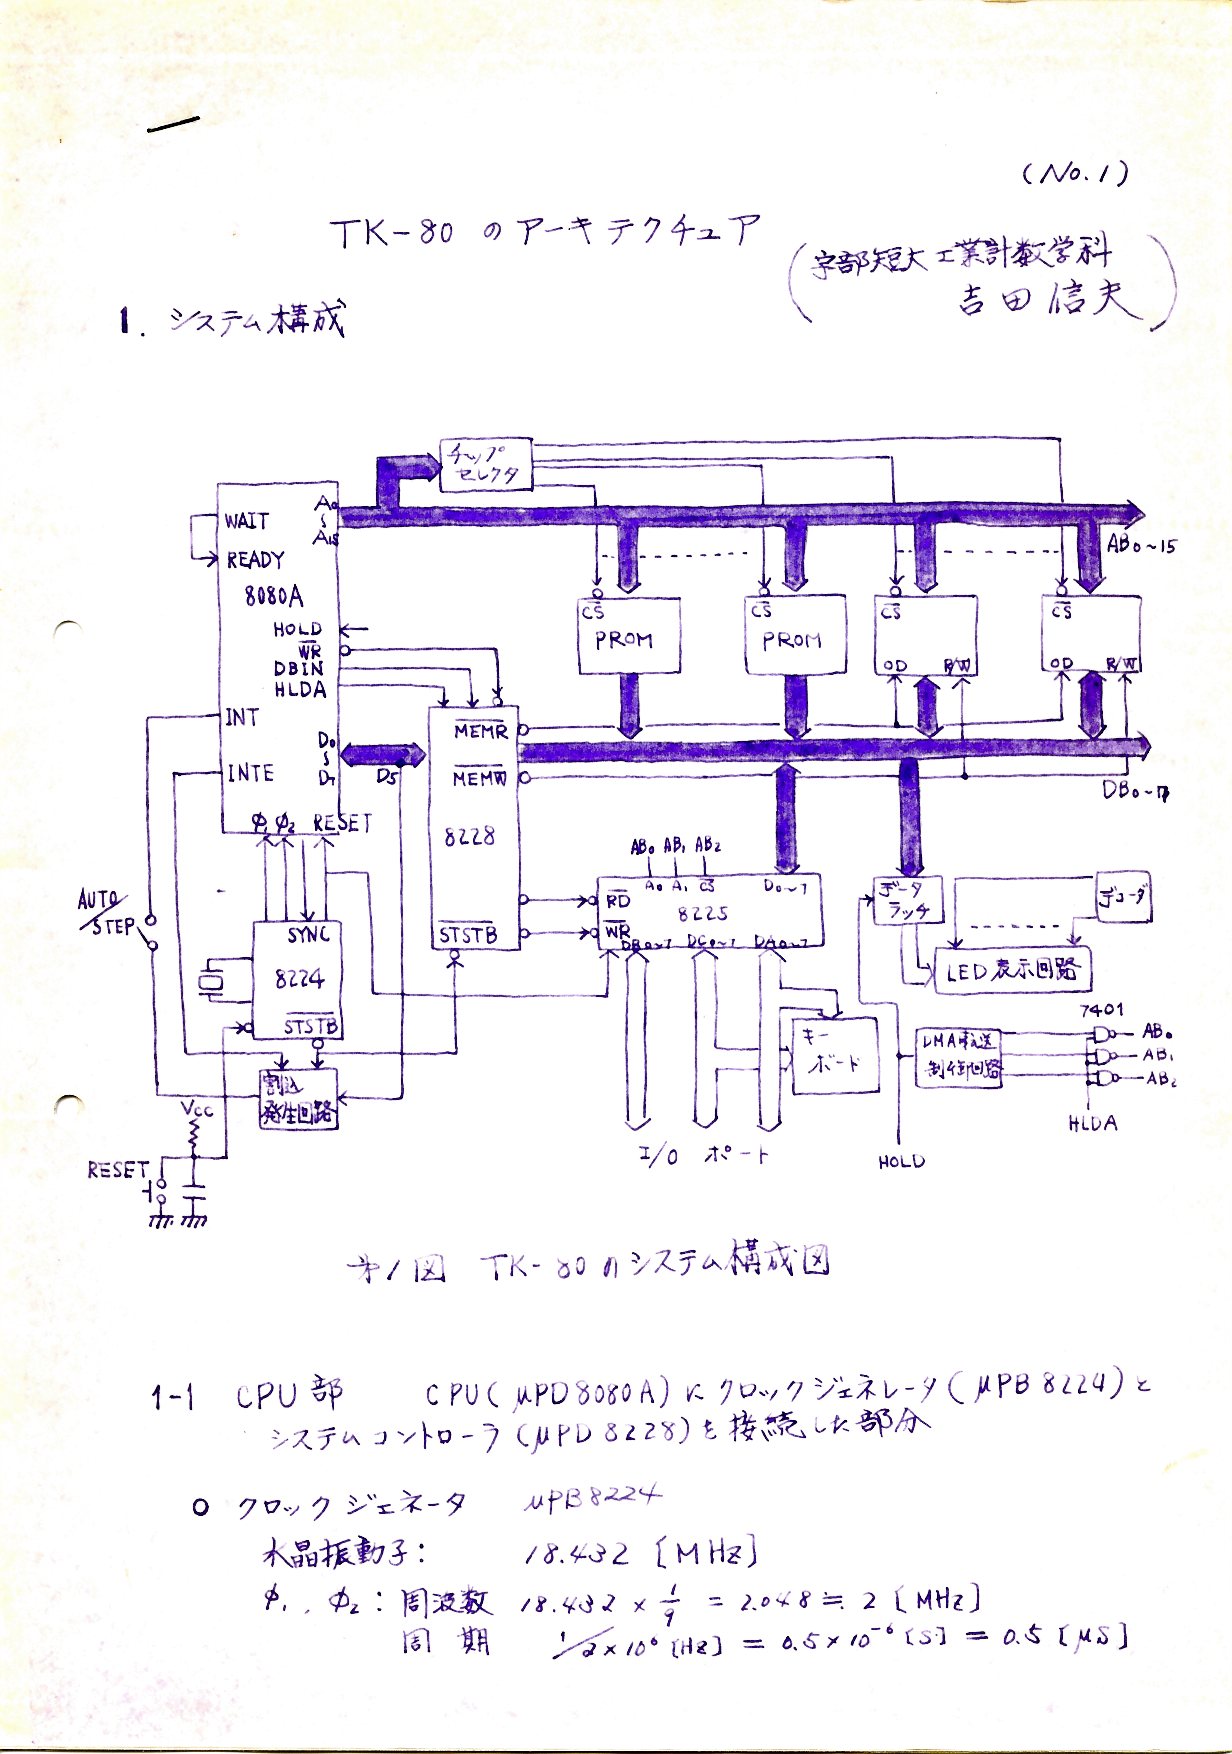 (No.1)
TK-80 のアーキテクチュア
(宇部短大 工業計数学科
吉田 信夫)
1. システム構成
チップ
セレクタ
WAIT
READY
8080A
A0
〜
A15
HOLD
WR
DBIN
HLDA
INT
INTE
D0
〜
D7
φ1 φ2 RESET
D5
AB0~15
CS
PROM
CS
PROM
CS
OD R/W
CS
OD R/W
MEMR
MEMW
8228
STSTB
DB0~7
AB0 AB1 AB2
A0 A1 CS D0~7
RD
8225
WR
DB0~7 DC0~7 DA0~7
データ
ラッチ
デコーダ
LED 表示回路
AUTO
/STEP
SYNC
8224
STSTB
割込
発生回路
VCC
RESET
キー
ボード
DMA転送
制御回路
7401
AB0
AB1
AB2
HLDA
HOLD
I/O ポート
第1図 TK-80のシステム構成図
1-1 CPU部 CPU(μPD8080A)にクロックジェネレータ(μPB8224)と
システムコントローラ(μPD8228)を接続した部分
○ クロックジェネータ μPB8224
水晶振動子: 18.432 [MHz]
φ1, φ2: 周波数 18.432 × 1/9 = 2.048 ≒ 2 [MHz]
周期 1/2×10⁶[Hz] = 0.5×10⁻⁶[S] = 0.5 [μS]